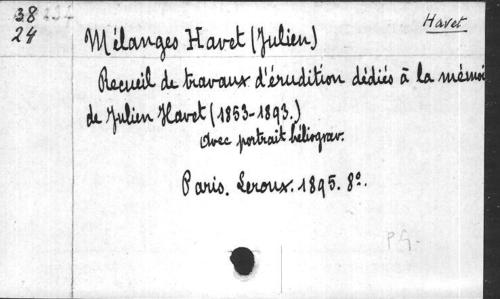 38
24
Havet
Mélanges Havet (Julien)
Recueil de travaux d'érudition dédiés à la mémoi
de Julien Havet (1853-1893.)
Avec portrait héliograv.
Paris. Leroux. 1895. 8º.
P.G.